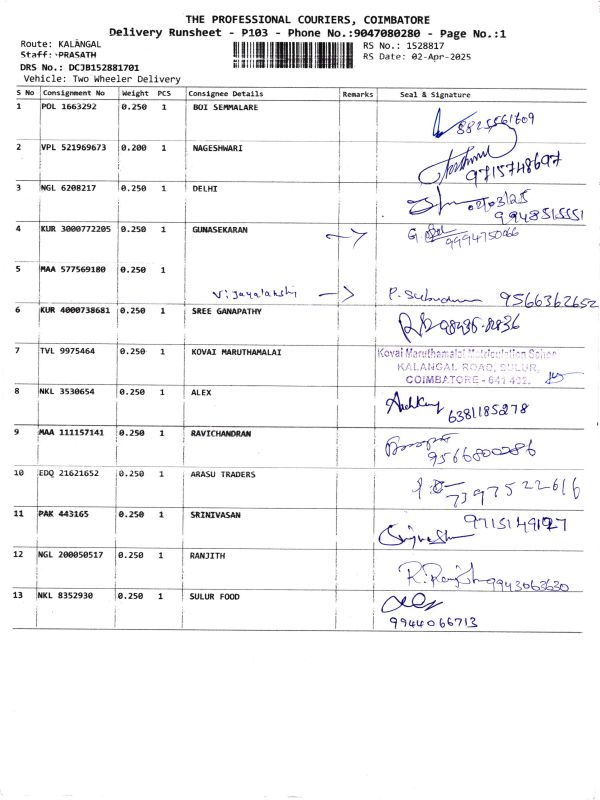 THE PROFESSIONAL COURIERS, COIMBATORE
Delivery Runsheet - P103 - Phone No.:9047080280 - Page No.:1
Route: KALANGAL
RS No.: 1528817
Staff: PRASATH
RS Date: 02-Apr-2025
DRS No.: DCJB152881701
Vehicle: Two Wheeler Delivery
S No Consignment No Weight PCS Consignee Details Remarks Seal & Signature
1 POL 1663292 0.250 1 BOI SEMMALARE
8825561609
2 VPL 521969673 0.200 1 NAGESHWARI
9715748697
3 NGL 6208217 0.250 1 DELHI
02/03/25
9948515551
4 KUR 3000772205 0.250 1 GUNASEKARAN
G
5 MAA 577569180 0.250 1
Vijayalakshi P. 9566362652
6 KUR 4000738681 0.250 1 SREE GANAPATHY
7 TVL 9975464 0.250 1 KOVAI MARUTHAMALAI
Kovai Maruthamalai Matriculation School
KALANGAL ROAD, SULUR,
COIMBATORE - 641 402.
8 NKL 3530654 0.250 1 ALEX
6381185278
9 MAA 111157141 0.250 1 RAVICHANDRAN
9566800286
10 EDQ 21621652 0.250 1 ARASU TRADERS
7397522616
11 PAK 443165 0.250 1 SRINIVASAN
12 NGL 200050517 0.250 1 RANJITH
R. Ranjith 9943063630
13 NKL 8352930 0.250 1 SULUR FOOD
9944066713